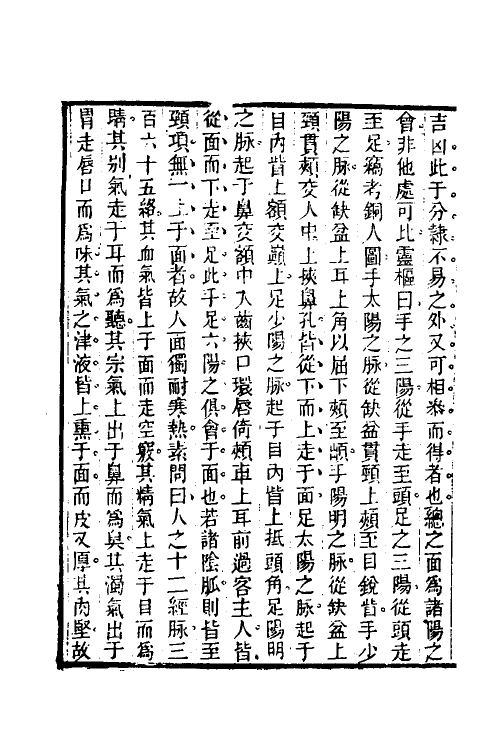 吉凶此于分隷不易之外又可相叅而得者也總之面爲諸陽之
會非他處可比靈樞曰手之三陽從手走至頭足之三陽從頭走
至足竊考銅人圖手太陽之脉從缺盆貫頸上頰至目銳眥手少
陽之脉從缺盆上耳上角以屈下頰至䪼手陽明之脉從缺盆上
頸貫頰交人中上挾鼻孔皆從下而上走于面足太陽之脉起于
目內眥上額交巔上足少陽之脉起于目內眥上抵頭角足陽明
之脉起于鼻交額中入齒挾口環唇倚頰車上耳前過客主人皆
從面而下走至足此手足六陽之俱會于面也若諸陰脈則皆至
頸項無一上于面者故人面獨耐寒熱素問曰人之十二經脉三
百六十五絡其血氣皆上于面而走空竅其精氣上走于目而爲
睛其别氣走于耳而爲聽其宗氣上出于鼻而爲臭其濁氣出于
胃走唇口而爲味其氣之津液皆上熏于面而皮又厚其肉堅故